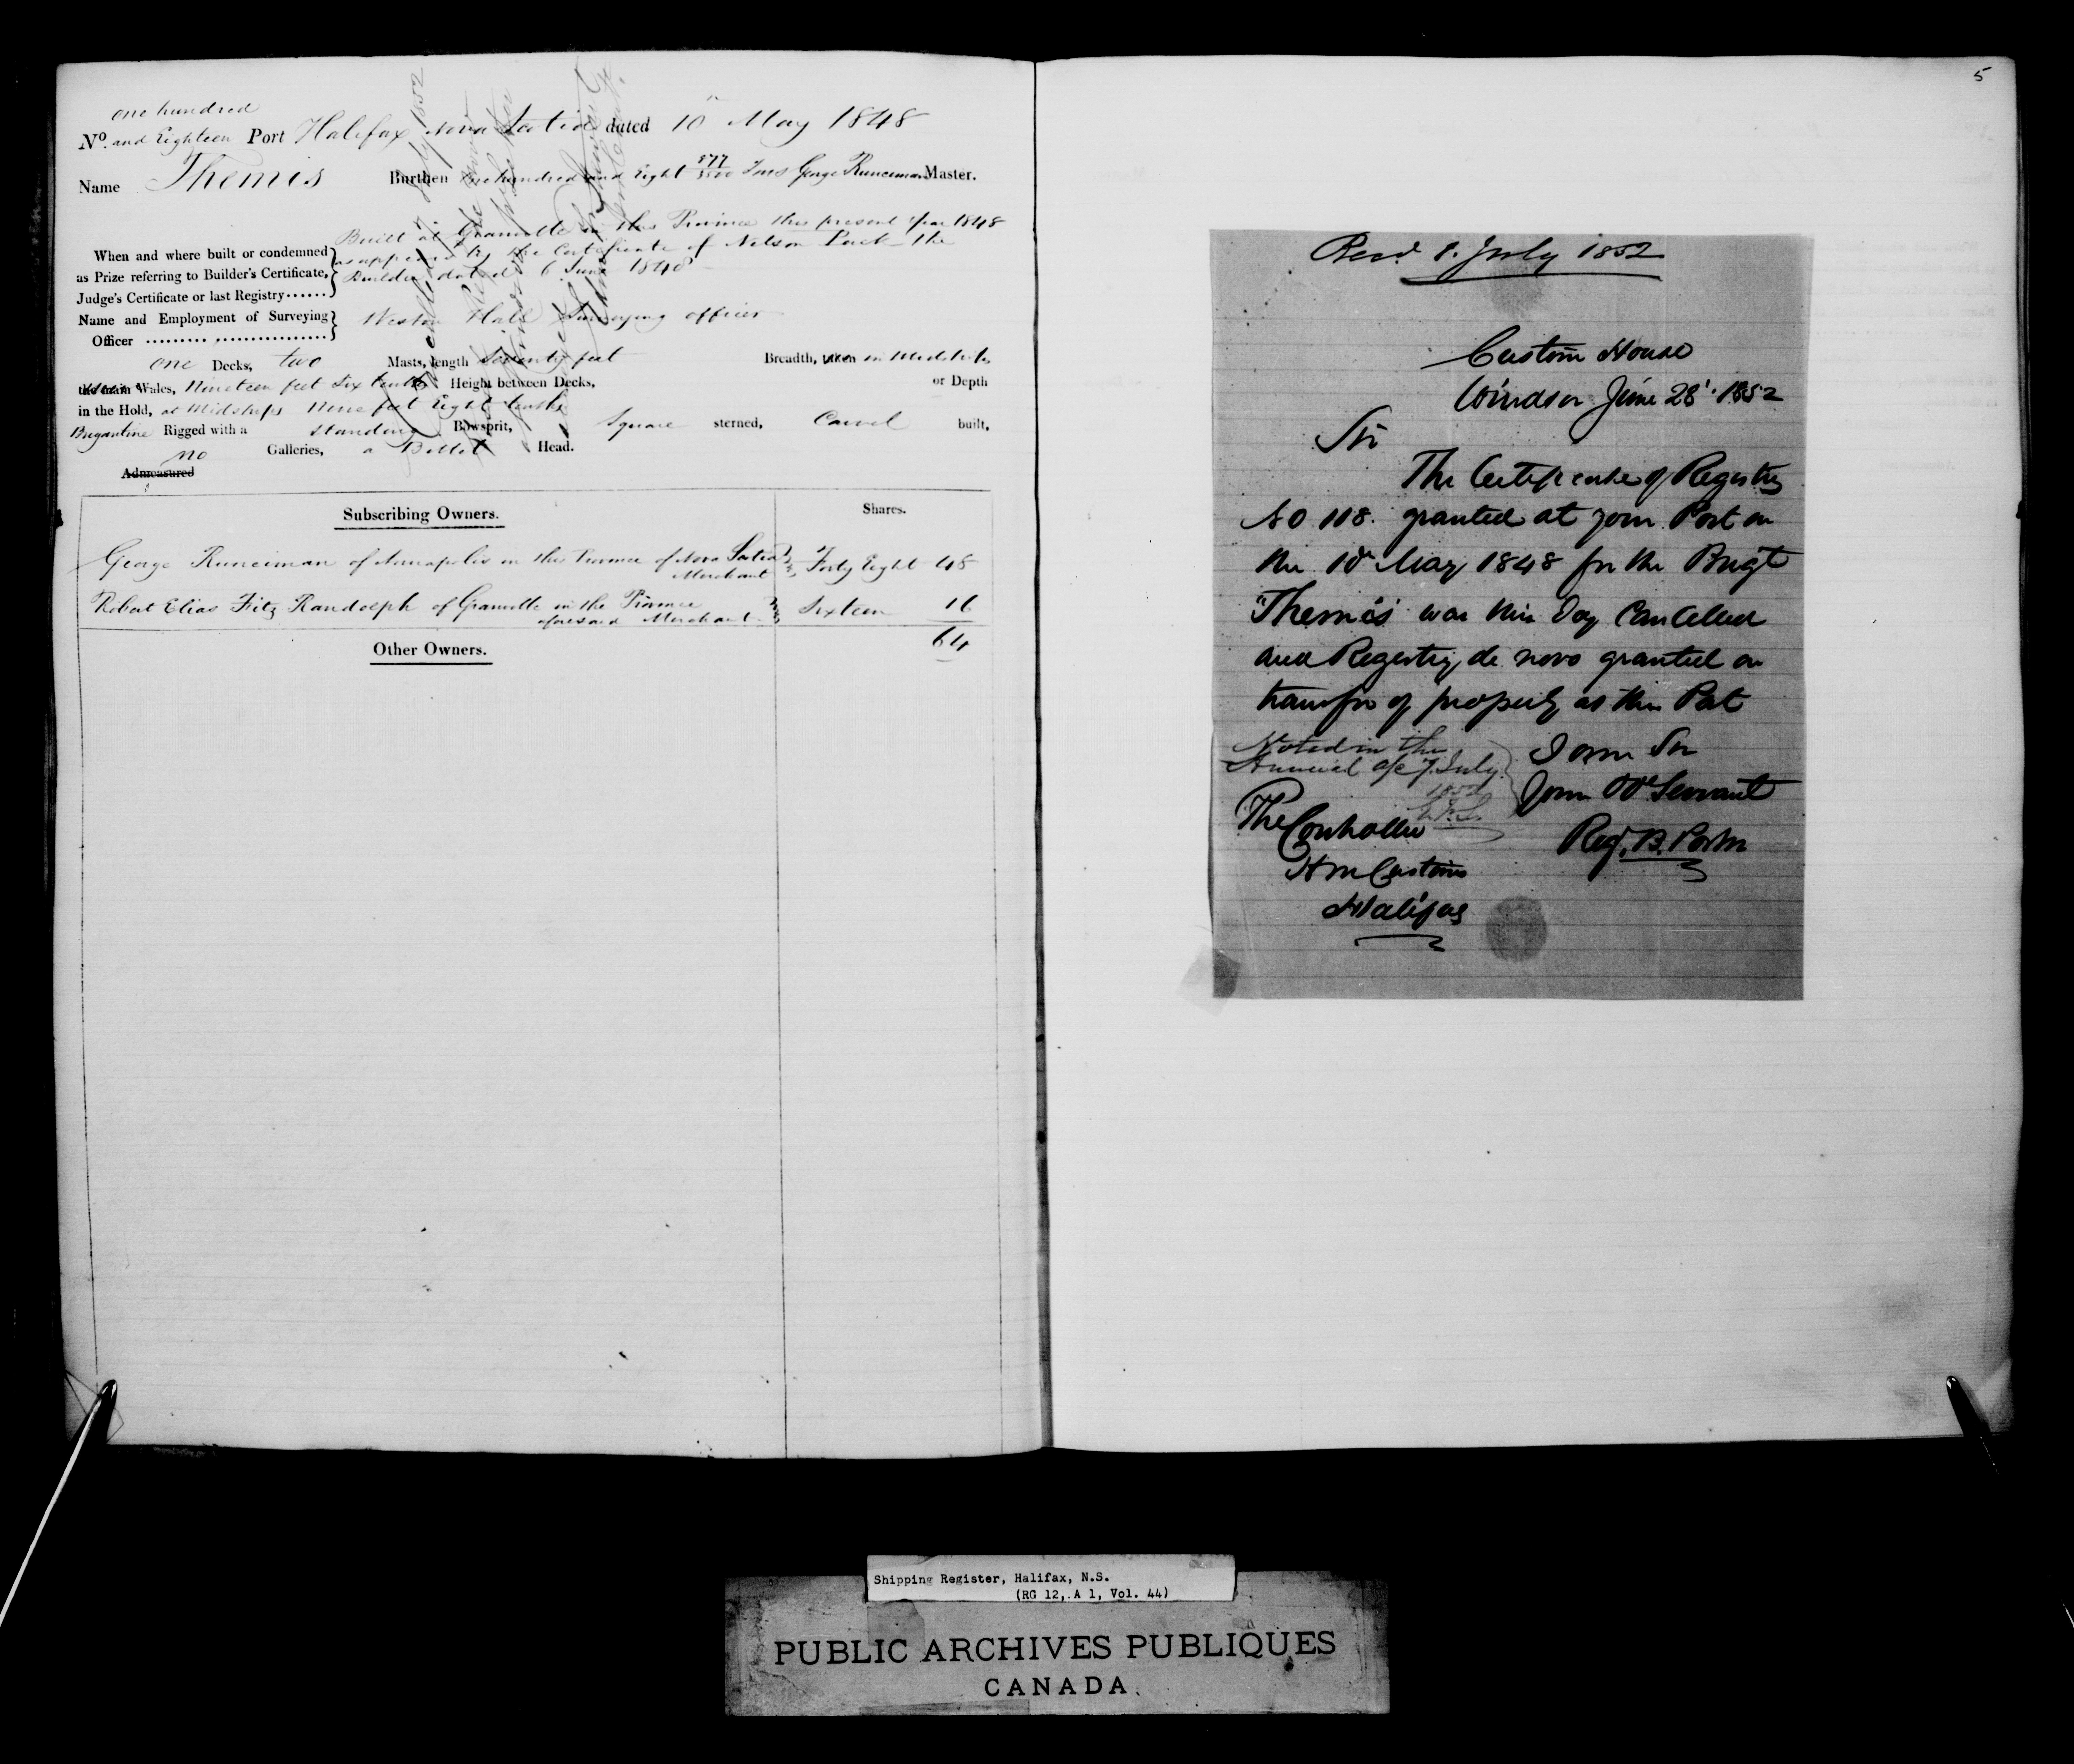 one hundred
No. and Eighteen Port Halifax Nova Scotia dated 10 May 1848
Name Themis Burthen One hundred and Eight 877/3500 Tons George Runciman Master.
When and where built or condemned as Prize referring to Builder's Certificate, Judge's Certificate or last Registry......
Built at Granville in this Province this present Year 1848
as appears by the Certificate of Nelson the
Builder dated 6 June 1848
Name and Employment of Surveying Officer ......... ................
Weston Hall Surveying officer
one Decks, two Masts, length Seventy feet Breadth, taken in Midships
the main Wales, Nineteen feet Six tenths Height between Decks, or Depth
in the Hold, at Midships Nine feet Eight tenths
Brigantine Rigged with a standing Bowsprit, Square sterned, Carvel built,
no Galleries, a Billet Head.
Admeasured
Subscribing Owners. Shares.
George Runciman of Annapolis in this Province of Nova Scotia Merchant Forty Eight 48
Robert Elias Fitz Randolph of Granville in the Province aforesaid Merchant Sixteen 16
64
Other Owners.
5
Recd 8. July 1852
Custom House
Windsor June 28' 1852
Sir
The Certificate of Registry
No 118. granted at your Port on
the 10th May 1848 for the Brigt
"Themis" was this Day Cancelled
and Registry de novo granted on
transfer of property at this Port
I am Sir
Your Obt Servant
Reg. B. Porter
Noted in the
Annual a/c 7. July
1852
The Controller
H M Customs
Halifax
Shipping Register, Halifax, N.S.
(RG 12, A 1, Vol. 44)
PUBLIC ARCHIVES PUBLIQUES
CANADA